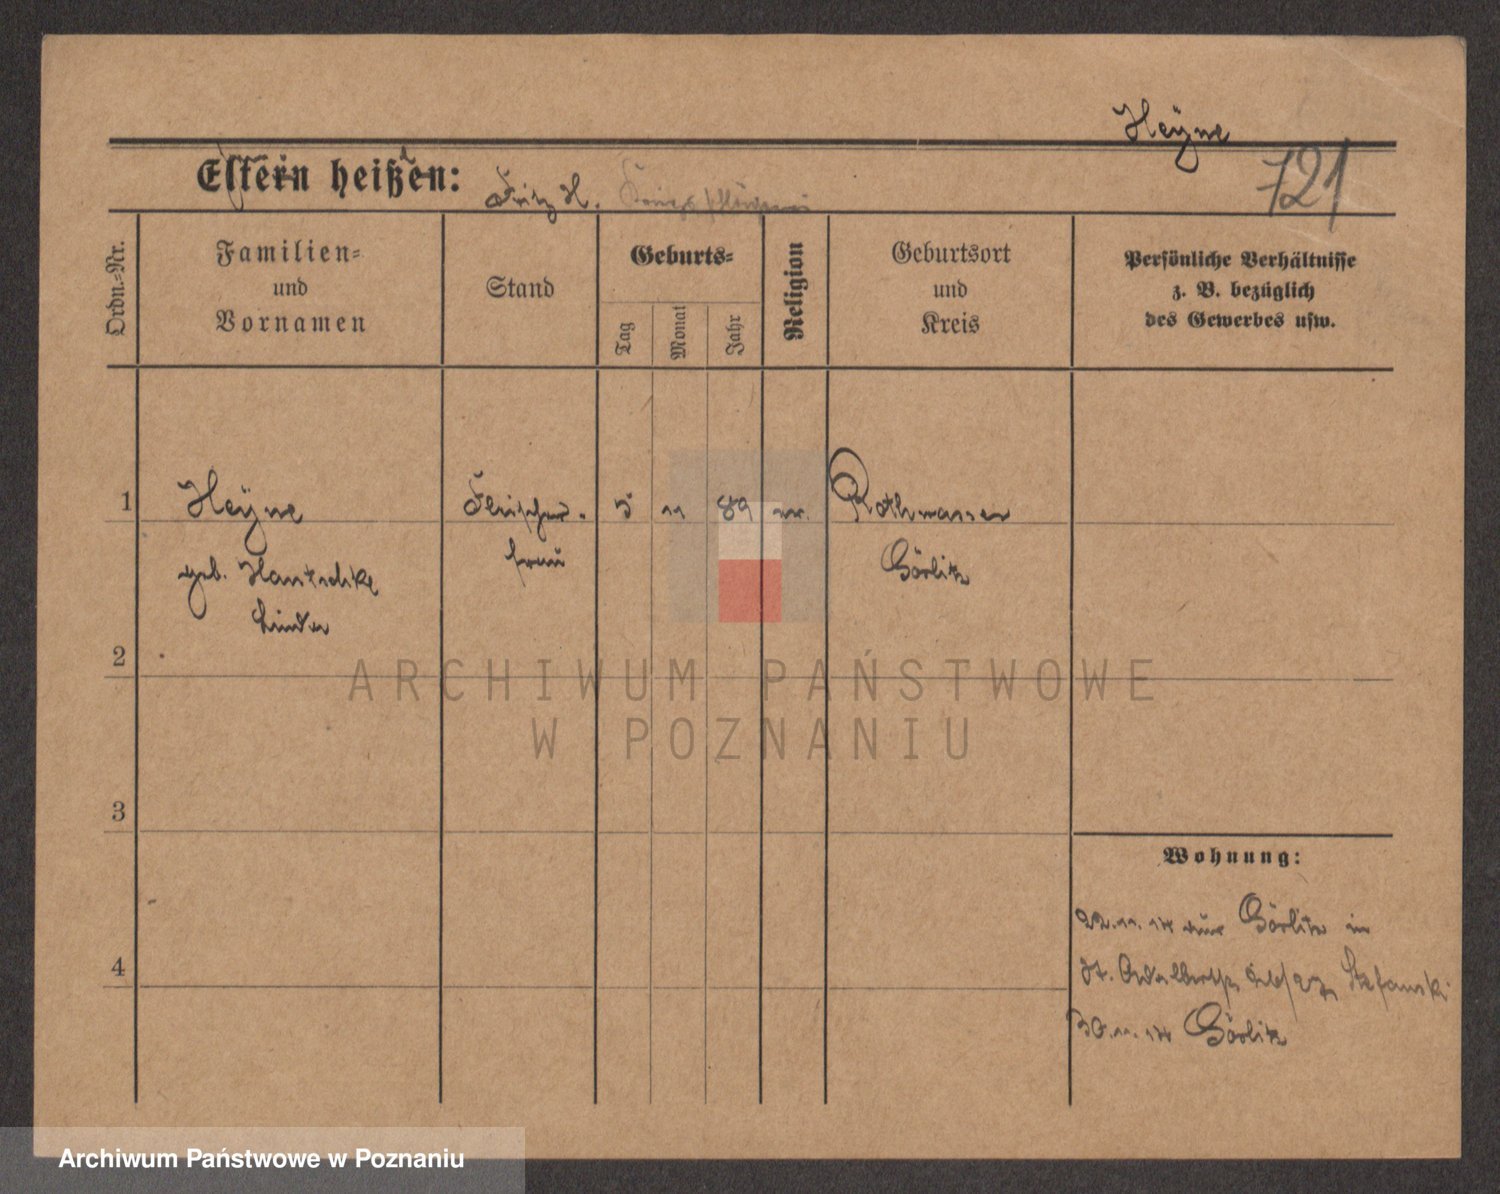 Heÿne
721
Eltern heißen:
Fritz H.
Ordn.-Nr.
Familien-
und
Vornamen
Stand
Geburts-
Tag
Monat
Jahr
Religion
Geburtsort
und
Kreis
Persönliche Verhältnisse
z. B. bezüglich
des Gewerbes usw.
1
Heÿne
Fleischer-
5 11 89
Rothwasser
frau
Görlitz
geb. Hantschke
Linda
2
ARCHIWUM PAŃSTWOWE
W POZNANIU
3
Wohnung:
22.11.14 aus Görlitz in
4
St. Adalbertstr. Stefanski
30.11.14 Görlitz
Archiwum Państwowe w Poznaniu